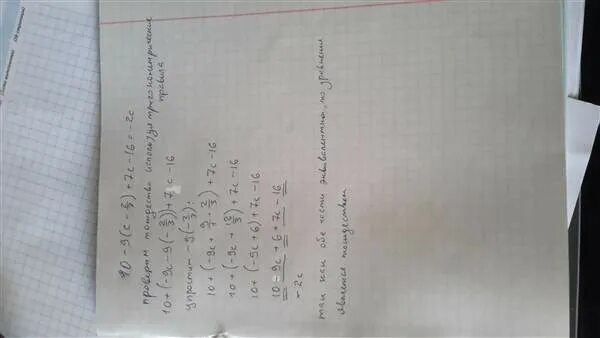 10 - 9(c - 2/3) + 7c - 16 = -2c
проверим тождество используя тригонометрические
правила
10 + (-9c - 9(-2/3)) + 7c - 16
упростит -9(-2/3):
10 + (-9c + 9/1 · 2/3) + 7c - 16
10 + (-9c + 18/3) + 7c - 16
10 + (-9c + 6) + 7c - 16
10 - 9c + 6 + 7c - 16
- 2c
так как обе части эквивалентны, то уравнение
является тождеством